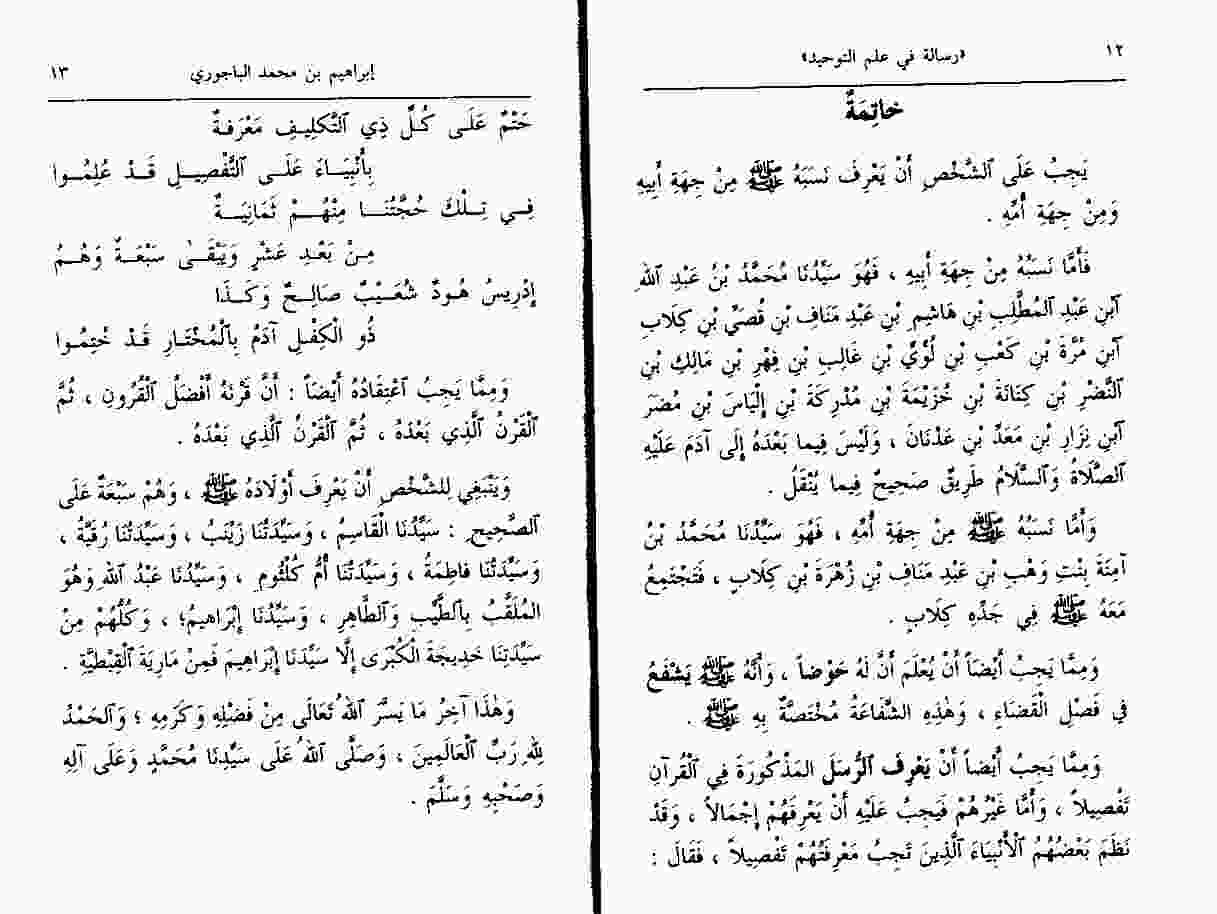 ١٢
«رسالة في علم التوحيد»
خاتِمَةٌ
يَجِبُ عَلَى ٱلشَّخْصِ أَنْ يَعْرِفَ نَسَبَهُ ﷺ مِنْ جِهَةِ أَبِيهِ
وَمِنْ جِهَةِ أُمِّهِ .
فَأَمَّا نَسَبُهُ مِنْ جِهَةِ أَبِيهِ ، فَهُوَ سَيِّدُنَا مُحَمَّدُ بْنُ عَبْدِ ٱللهِ
ٱبْنِ عَبْدِ ٱلمُطَّلِبِ بْنِ هَاشِمِ بْنِ عَبْدِ مَنَافِ بْنِ قُصَيِّ بْنِ كِلَابِ
ٱبْنِ مُرَّةَ بْنِ كَعْبِ بْنِ لُؤَيِّ بْنِ غَالِبِ بْنِ فِهْرِ بْنِ مَالِكِ بْنِ
ٱلنَّضْرِ بْنِ كِنَانَةَ بْنِ خُزَيْمَةَ بْنِ مُدْرِكَةَ بْنِ إِلْيَاسَ بْنِ مُضَرَ
ٱبْنِ نِزَارِ بْنِ مَعَدِّ بْنِ عَدْنَانَ ، وَلَيْسَ فِيما بَعْدَهُ إِلَى آدَمَ عَلَيْهِ
ٱلصَّلَاةُ وَٱلسَّلَامُ طَرِيقٌ صَحِيحٌ فِيما يُنْقَلُ .
وَأَمَّا نَسَبُهُ ﷺ مِنْ جِهَةِ أُمِّهِ ، فَهُوَ سَيِّدُنَا مُحَمَّدُ بْنُ
آمِنَةَ بِنْتِ وَهْبِ بْنِ عَبْدِ مَنَافِ بْنِ زُهْرَةَ بْنِ كِلَابٍ ، فَتَجْتَمِعُ
مَعَهُ ﷺ فِي جَدِّهِ كِلَابٍ .
وَمِمَّا يَجِبُ أَيْضاً أَنْ يُعْلَمَ أَنَّ لَهُ حَوْضاً ، وَأَنَّهُ ﷺ يَشْفَعُ
فِي فَصْلِ الْقَضَاءِ ، وَهَٰذِهِ الشَّفَاعَةُ مُخْتَصَّةٌ بِهِ ﷺ .
وَمِمَّا يَجِبُ أَيْضاً أَنْ يَعْرِفَ ٱلرُّسَلَ المَذْكُورَةَ فِي ٱلْقُرآنِ
تَفْصِيلاً ، وَأَمَّا غَيْرُهُمْ فَيَجِبُ عَلَيْهِ أَنْ يَعْرِفَهُمْ إِجْمَالاً ، وَقَدْ
نَظَمَ بَعْضُهُمُ ٱلْأَنْبِيَاءَ ٱلَّذِينَ تَجِبُ مَعْرِفَتُهُمْ تَفْصِيلاً ، فَقَالَ :
إبراهيم بن محمد الباجوري
١٣
حَتْمٌ عَلَى كُلِّ ذِي ٱلتَّكْلِيفِ مَعْرَفَةٌ
بِأَنْبِيَاءَ عَلَى ٱلتَّفْصِيلِ قَدْ عُلِمُوا
فِي تِلْكَ حُجَّتُنَا مِنْهُمْ ثَمَانِيَةٌ
مِنْ بَعْدِ عَشْرٍ وَيَبْقَىٰ سَبْعَةٌ وَهُمُ
إِدْرِيسُ هُودٌ شُعَيْبٌ صَالِحٌ وَكَذَا
ذُو الْكِفْلِ آدَمُ بِٱلْمُخْتَارِ قَدْ خُتِمُوا
وَمِمَّا يَجِبُ ٱعْتِقَادُهُ أَيْضَاً : أَنَّ قَرْنَهُ أَفْضَلُ ٱلْقُرُونِ ، ثُمَّ
ٱلْقَرْنُ ٱلَّذِي بَعْدَهُ ، ثُمَّ ٱلْقَرْنُ ٱلَّذِي بَعْدَهُ .
وَيَنْبَغِي لِلشَّخْصِ أَنْ يَعْرِفَ أَوْلَادَهُ ﷺ ، وَهُمْ سَبْعَةٌ عَلَى
ٱلصَّحِيحِ : سَيِّدُنَا الْقَاسِمُ ، وَسَيِّدَتُنَا زَيْنَبُ ، وَسَيِّدَتُنَا رُقَيَّةُ ،
وَسَيِّدَتُنَا فاطِمَةُ ، وَسَيِّدَتُنَا أُمُّ كُلْثُومِ ، وَسَيِّدُنَا عَبْدُ ٱللهِ وَهُوَ
المُلَقَّبُ بِٱلطَّيِّبِ وَٱلطَّاهِرِ ، وَسَيِّدُنَا إِبْرَاهِيمُ؛ ، وَكُلُّهُمْ مِنْ
سَيِّدَتِنَا خَدِيجَةَ الْكُبْرَى إِلَّا سَيِّدَنَا إِبْرَاهِيمَ فَمِنْ مَارِيَةَ ٱلْقِبْطِيَّةِ .
وَهَٰذَا آخِرُ مَا يَسَّرَ ٱللهُ تَعَالَى مِنْ فَضْلِهِ وَكَرَمِهِ ؛ وَٱلحَمْدُ
لِلهِ رَبِّ ٱلْعَالَمِينَ ، وَصَلَّى ٱللهُ عَلَى سَيِّدِنَا مُحَمَّدٍ وَعَلَى آلِهِ
وَصَحْبِهِ وَسَلَّمَ .